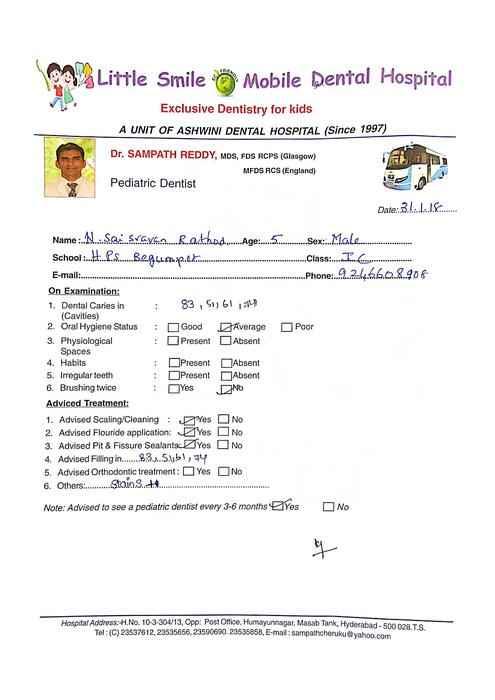 Little Smile ECO FRIENDLY Mobile Dental Hospital
Exclusive Dentistry for kids
A UNIT OF ASHWINI DENTAL HOSPITAL (Since 1997)
Dr. SAMPATH REDDY, MDS, FDS RCPS (Glasgow)
MFDS RCS (England)
Pediatric Dentist
Date: 31.1.18
Name: N. Sai Sravan Rathod Age: 5 Sex: Male
School: H.P.S Begumpet Class: I C
E-mail: Phone: 9246608908
On Examination:
1. Dental Caries in : 83, 51, 61, 74
(Cavities)
2. Oral Hygiene Status : Good Average Poor
3. Physiological : Present Absent
Spaces
4. Habits : Present Absent
5. Irregular teeth : Present Absent
6. Brushing twice : Yes No
Adviced Treatment:
1. Advised Scaling/Cleaning : Yes No
2. Advised Flouride application: Yes No
3. Advised Pit & Fissure Sealants: Yes No
4. Advised Filling in 83, 51, 61, 74
5. Advised Orthodontic treatment : Yes No
6. Others: Stains ++
Note: Advised to see a pediatric dentist every 3-6 months Yes No
Hospital Address:-H.No. 10-3-304/13, Opp: Post Office, Humayunnagar, Masab Tank, Hyderabad - 500 028.T.S.
Tel : (C) 23537612, 23535656, 23590690. 23535858, E-mail : sampathcheruku@yahoo.com